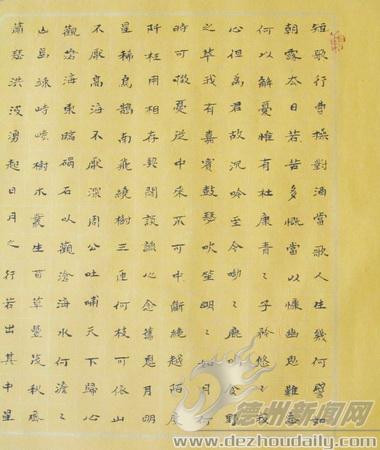 短歌行曹操對酒當歌人生幾何譬如
朝露去日苦多慨當以慷幽思難忘
何以解憂惟有杜康青〻子衿悠〻我
心但為君故沉吟至今呦〻鹿鳴食野
之苹我有嘉賓鼓瑟吹笙明〻如月何
時可掇憂從中來不可中斷絕越陌度
阡枉用相存契闊談讌心念舊恩月明
星稀烏鵲南飛繞樹三匝何枝可依山
不厭高海不厭深周公吐哺天下歸心
觀滄海東臨碣石以觀滄海水何澹〻
山島竦峙樹木叢生百草豐茂秋風
蕭瑟洪波湧起日月之行若出其中星
德州新闻网
www.dezhoudaily.com